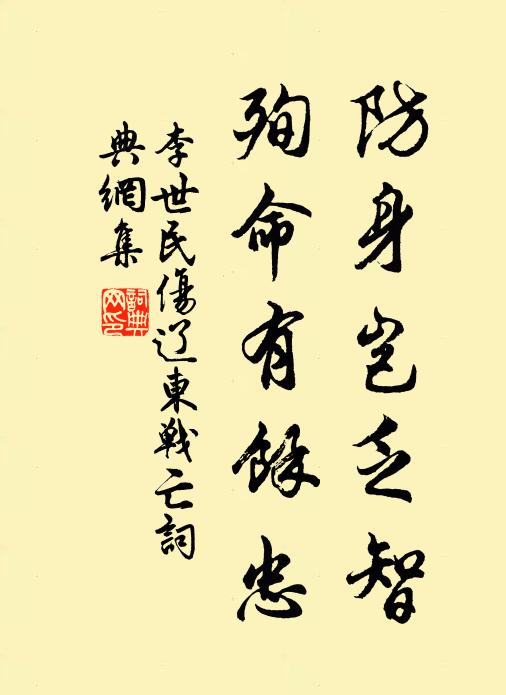 防身岂乏智
殉命有餘忠
李世民傷辽東戦亡詞
典網集
詞典
网印